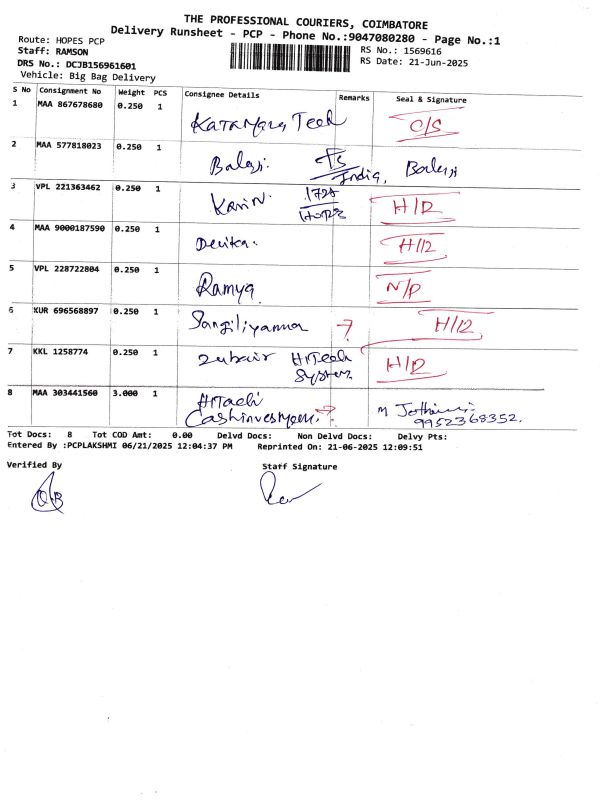 THE PROFESSIONAL COURIERS, COIMBATORE
Delivery Runsheet - PCP - Phone No.:9047080280 - Page No.:1
Route: HOPES PCP
Staff: RAMSON
DRS No.: DCJB156961601
Vehicle: Big Bag Delivery
RS No.: 1569616
RS Date: 21-Jun-2025
S No Consignment No Weight PCS Consignee Details Remarks Seal & Signature
1 MAA 867678680 0.250 1 Tech C/S
2 MAA 577818023 0.250 1 Balaji. India, Balaji
3 VPL 221363462 0.250 1 H/12
4 MAA 9000187590 0.250 1 Devika. H/12
5 VPL 228722804 0.250 1 Ramya N/P
6 KUR 696568897 0.250 1 Sangiliyamma ? H/12
7 KKL 1258774 0.250 1 Zubair HiTech System H/12
8 MAA 303441560 3.000 1 HiTachi ? M 9952368352.
Tot Docs: 8 Tot COD Amt: 0.00 Delvd Docs: Non Delvd Docs: Delvy Pts:
Entered By :PCPLAKSHMI 06/21/2025 12:04:37 PM Reprinted On: 21-06-2025 12:09:51
Verified By Staff Signature